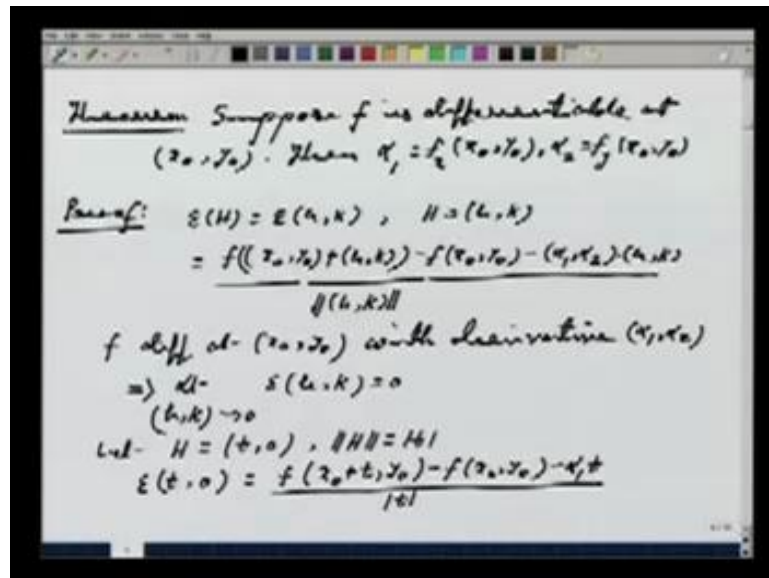 Theorem Suppose f is differentiable at
(x₀, y₀). Then α₁ = fₓ(x₀, y₀), α₂ = f_y(x₀, y₀)
Proof: ε(H) = ε(h, k), H = (h, k)
= f((x₀, y₀) + (h, k)) - f(x₀, y₀) - (α₁, α₂).(h, k)
||(h, k)||
f diff at (x₀, y₀) with derivative (α₁, α₂)
=> lt ε(h, k) = 0
(h, k) → 0
Let H = (t, 0), ||H|| = |t|
ε(t, 0) = f(x₀ + t, y₀) - f(x₀, y₀) - α₁t
|t|